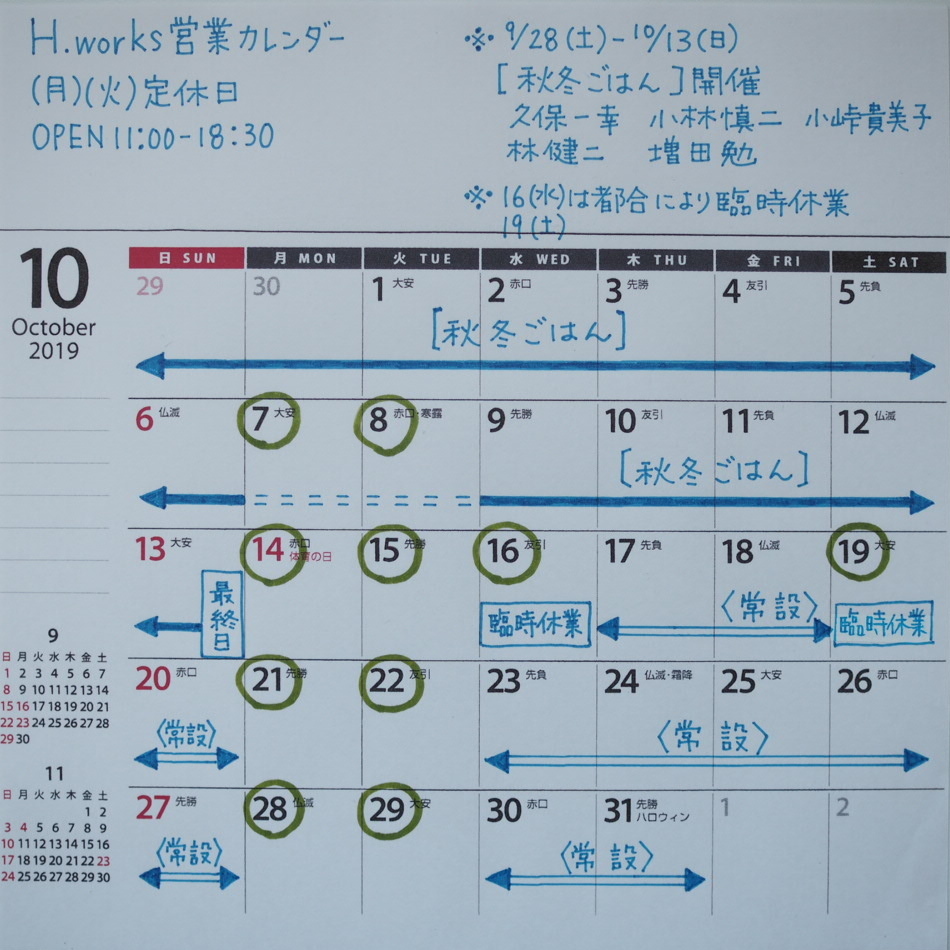 H.works営業カレンダー
(月)(火)定休日
OPEN 11:00-18:30
※ 9/28(土)-10/13(日)
[秋冬ごはん]開催
久保一幸 小林慎二 小峠貴美子
林健二 増田勉
※ 16(水)は都合により臨時休業
19(土)
10
October
2019
日 SUN 月 MON 火 TUE 水 WED 木 THU 金 FRI 土 SAT
29 30 1 大安 2 赤口 3 先勝 4 友引 5 先負
[秋冬ごはん]
6 仏滅 7 大安 8 赤口・寒露 9 先勝 10 友引 11 先負 12 仏滅
[秋冬ごはん]
13 大安 14 赤口 体育の日 15 先勝 16 友引 17 先負 18 仏滅 19 大安
最終日 臨時休業 〈常設〉 臨時休業
20 赤口 21 先勝 22 友引 23 先負 24 仏滅・霜降 25 大安 26 赤口
〈常設〉 〈常設〉
27 先勝 28 仏滅 29 大安 30 赤口 31 先勝 ハロウィン 1 2
〈常設〉 〈常設〉
9
日 月 火 水 木 金 土
1 2 3 4 5 6 7
8 9 10 11 12 13 14
15 16 17 18 19 20 21
22 23 24 25 26 27 28
29 30
11
日 月 火 水 木 金 土
1 2
3 4 5 6 7 8 9
10 11 12 13 14 15 16
17 18 19 20 21 22 23
24 25 26 27 28 29 30